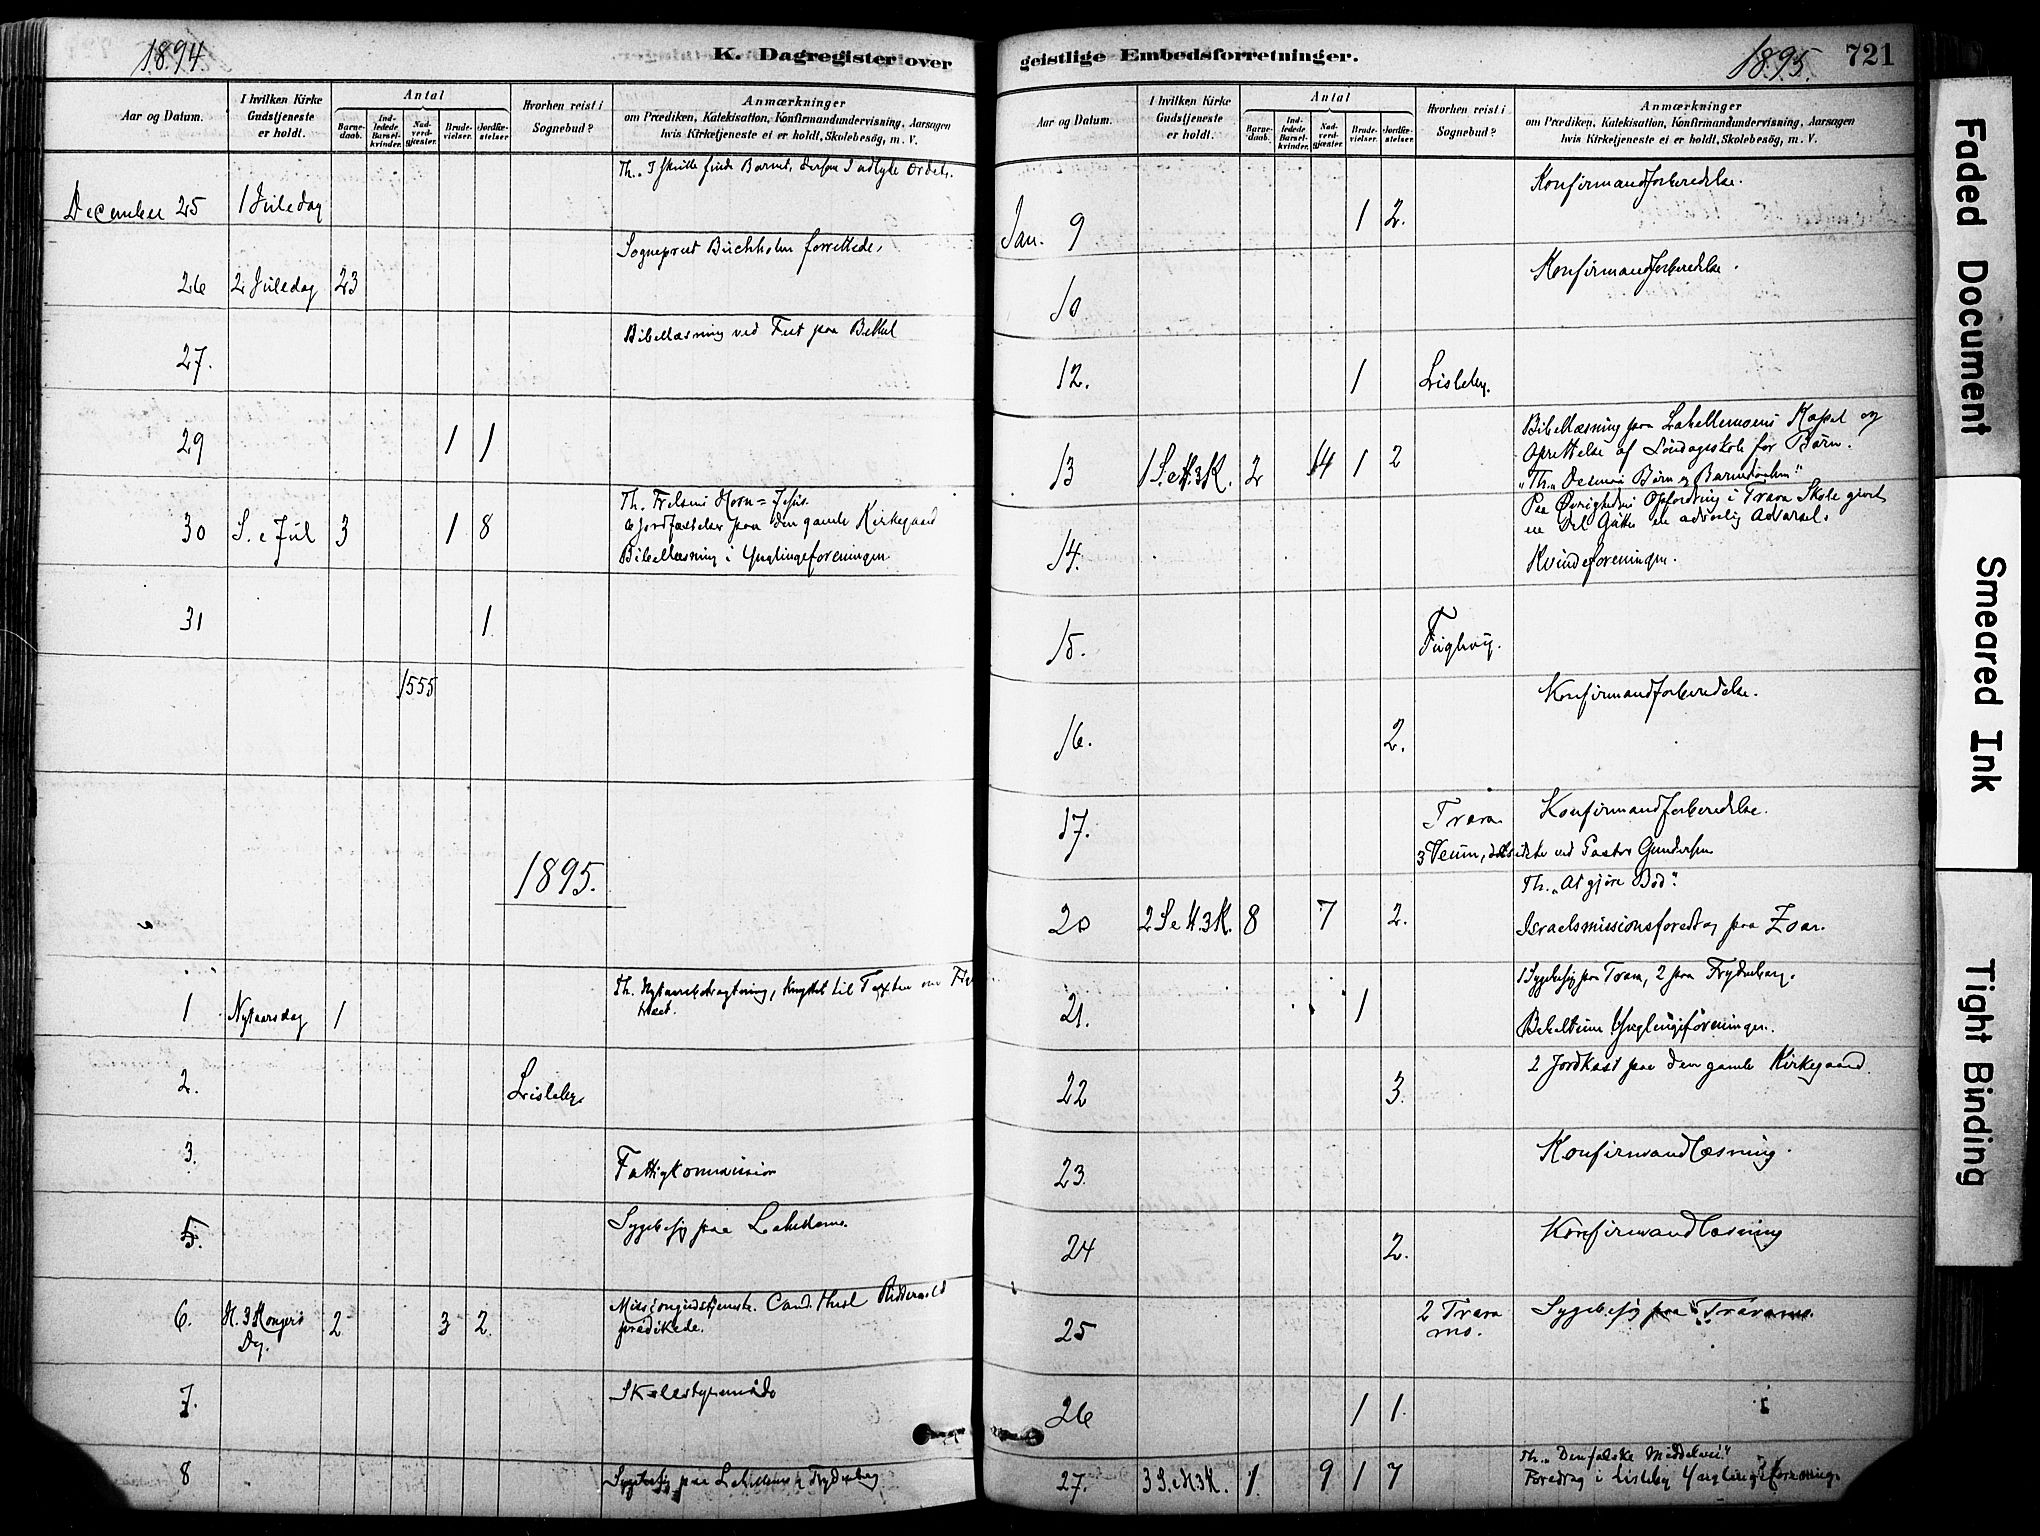 1894
K. Dagregister over
Aar og Datum.
I hvilken Kirke Gudstjeneste er holdt.
Antal
Barnedaab.
Indledede Barselkvinder.
Nadverdgjæster.
Brudevielser.
Jordfæstelser.
Hvorhen reist i Sognebud?
Anmærkninger
om Prædiken, Katekisation, Konfirmandundervisning, Aarsagen
hvis Kirketjeneste ei er holdt, Skolebesög, m. V.
Th. I skulle finde Barnet, dersom I adlyde Ordet.
December 25 1 Juledag
Sogneprest Buchholm forrettede.
26 2 Juledag 23
Bibellæsning ved Fest paa Bethel
27.
29 1 1
Th. Frelsens Horn = Jesus.
30 S. e Jul 3 1 8 6 Jordfæstelser paa den gamle Kirkegaard
Bibellæsning i Ynglingeforeningen
31 1.
1555
1895.
Th. Nytaarsbetragtning, knyttet til Texten om
1 Nytaarsdag 1
2. Lisleby.
3. Fattigkommission
5. Sygebesøg paa
6. H. 3 Kongers Dg. 2 3 2. Missionsgudstjeneste. Cand. theol Riddervold
prædikede.
7. Skolestyremøde
8 Sygebesøg paa
geistlige Embedsforretninger.
1895.
721
Aar og Datum.
I hvilken Kirke Gudstjeneste er holdt.
Antal
Barnedaab.
Indledede Barselkvinder.
Nadverdgjæster.
Brudevielser.
Jordfæstelser.
Hvorhen reist i Sognebud?
Anmærkninger
om Prædiken, Katekisation, Konfirmandundervisning, Aarsagen
hvis Kirketjeneste ei er holdt, Skolebesög, m. V.
Konfirmandforberedelse.
Jan. 9 1 2.
10. Konfirmandforberedelse.
12. 1 Lisleby.
Bibellæsning paa Kapel og
Oprettelse af Søndagsskole for Børn.
13 1 S. e H. 3 K. 2 14 1 2
Paa Øvrighedens Opfordring i Trara Skole givet
en Del Gutter en advarlig Advarsel.
14. Kvindeforeningen.
15. Fuglevig.
16. 2. Konfirmandforberedelse.
17. Trara Konfirmandforberedelse.
3 Veum, ved Pastor Gundersen
Th. "At gjøre Bod".
20 2 S e H. 3 K. 8 7 2. Israelsmissionsforedrag paa Zoar.
1 Sygebesøg paa Trara, 2 paa Frydenberg.
21. 1 Bibeltime Ynglingeforeningen.
22 3. 2 Jordkast paa den gamle Kirkegaard
23. Konfirmandlæsning.
24 2. Konfirmandlæsning
25 2 Traramo. Sygebesøg paa Traramo.
26 1 1.
Th. "Den falske Middelvei"
27. 3 S. e H. 3 K. 1. 9 1 7 Foredrag i Lisleby Ynglingeforening
Faded Document
Smeared Ink
Tight Binding